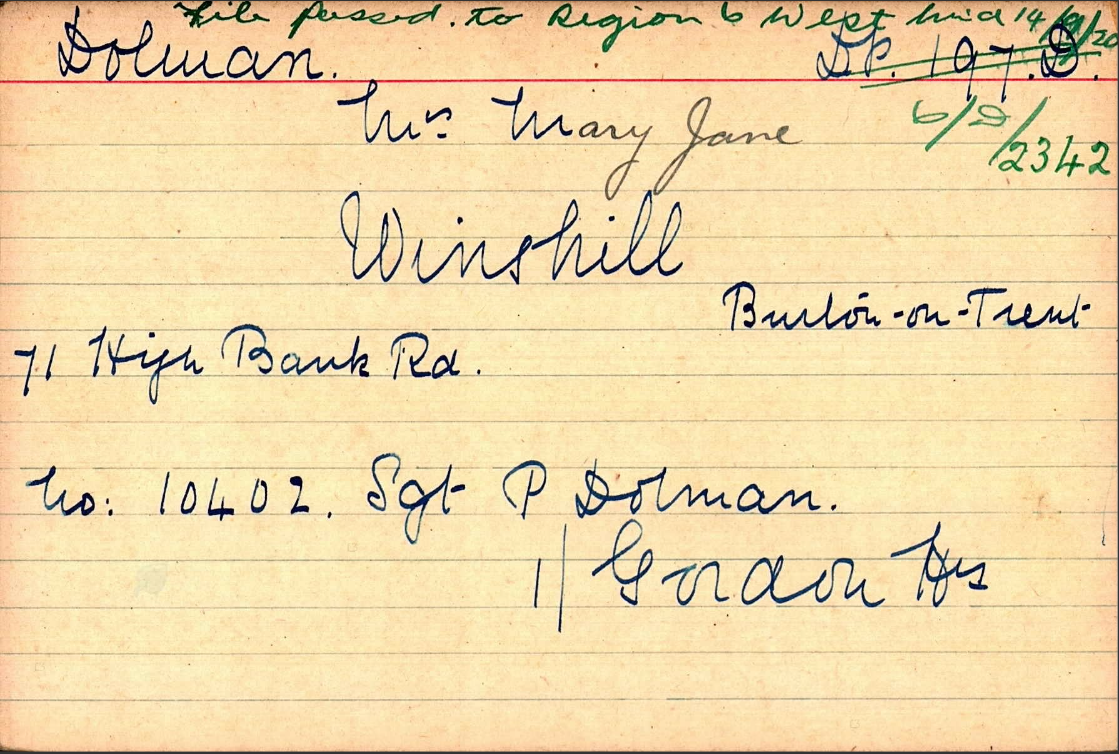 File passed. to Region 6 West Mid 14/9/20
Dolman. DP. 197.D.
Mrs Mary Jane 6/D/2342
Winshill
Burton-on-Trent
71 High Bank Rd.
No: 10402. Sgt P Dolman.
1/ Gordon Hrs